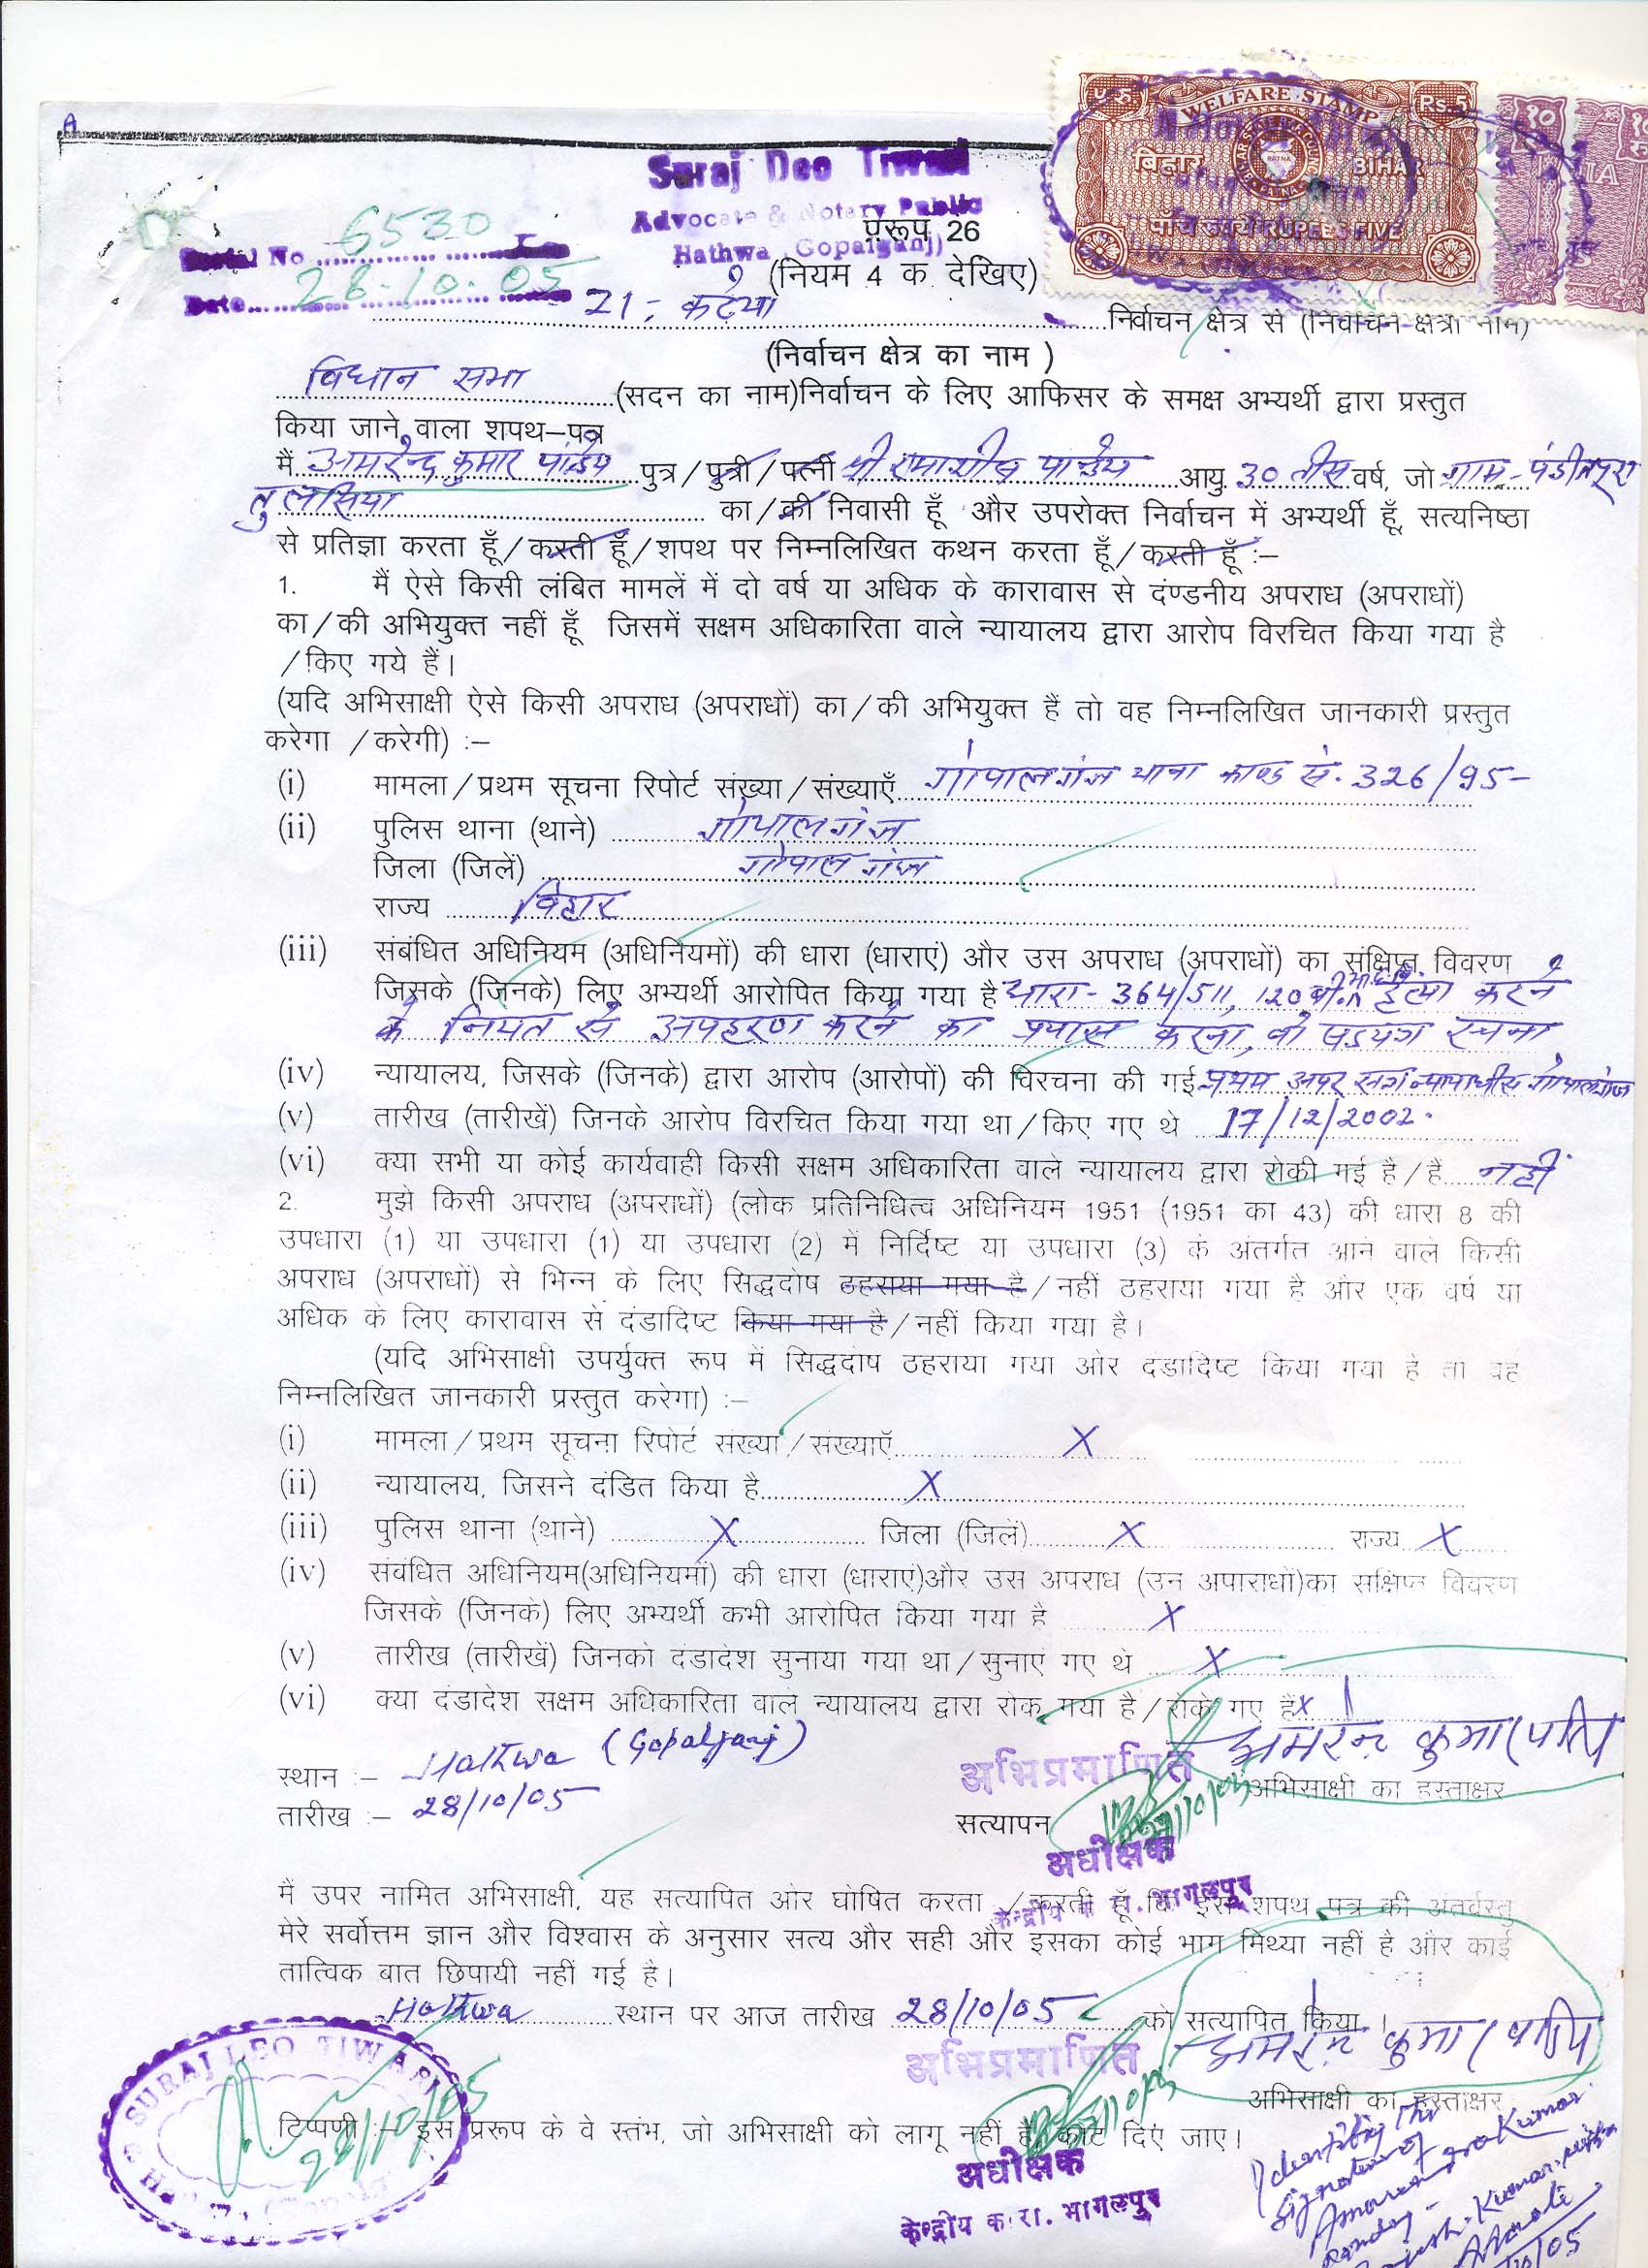 A
Suraj Deo Tiwari
Advocate & Notary Public
Hathwa (Gopalganj)
Serial No 6530
Date 28-10-05
५ रु WELFARE STAMP Rs 5
बिहार BIHAR
PATNA
पाँच रुपये RUPEES FIVE
१०
प्ररूप 26
(नियम 4 क देखिए)
21, कटेया निर्वाचन क्षेत्र से (निर्वाचन क्षेत्रा नाम)
(निर्वाचन क्षेत्र का नाम )
विधान सभा (सदन का नाम)निर्वाचन के लिए आफिसर के समक्ष अभ्यर्थी द्वारा प्रस्तुत
किया जाने वाला शपथ–पत्र
मैं अमरेन्द्र कुमार पांडेय पुत्र/पुत्री/पत्नी श्री रमाशीष पान्डेय आयु 30 तीस वर्ष, जो ग्राम-पंडीतपुरा
तुलसिया का/की निवासी हूँ और उपरोक्त निर्वाचन में अभ्यर्थी हूँ, सत्यनिष्ठा
से प्रतिज्ञा करता हूँ/करती हूँ/शपथ पर निम्नलिखित कथन करता हूँ/करती हूँ :–
1. मैं ऐसे किसी लंबित मामलें में दो वर्ष या अधिक के कारावास से दंण्डनीय अपराध (अपराधों)
का/की अभियुक्त नहीं हूँ जिसमें सक्षम अधिकारिता वाले न्यायालय द्वारा आरोप विरचित किया गया है
/किए गये हैं।
(यदि अभिसाक्षी ऐसे किसी अपराध (अपराधों) का/की अभियुक्त हैं तो वह निम्नलिखित जानकारी प्रस्तुत
करेगा /करेगी) :–
(i) मामला/प्रथम सूचना रिपोर्ट संख्या/संख्याएँ गोपालगंज थाना काण्ड सं. 326/95-
(ii) पुलिस थाना (थाने) गोपालगंज
जिला (जिलें) गोपालगंज
राज्य बिहार
(iii) संबंधित अधिनियम (अधिनियमों) की धारा (धाराएं) और उस अपराध (अपराधों) का संक्षिप्त विवरण
जिसके (जिनके) लिए अभ्यर्थी आरोपित किया गया है धारा- 364/511, 120 बी. भा.द.वि. हत्या करने
के नियत से अपहरण करने का प्रयास करना, वो षडयंत्र रचना
(iv) न्यायालय, जिसके (जिनके) द्वारा आरोप (आरोपों) की विरचना की गई प्रथम अपर सत्र न्यायाधीस गोपालगंज
(v) तारीख (तारीखें) जिनके आरोप विरचित किया गया था/किए गए थे 17/12/2002.
(vi) क्या सभी या कोई कार्यवाही किसी सक्षम अधिकारिता वाले न्यायालय द्वारा रोकी गई है/हैं नहीं
2. मुझे किसी अपराध (अपराधों) (लोक प्रतिनिधित्व अधिनियम 1951 (1951 का 43) की धारा 8 की
उपधारा (1) या उपधारा (1) या उपधारा (2) में निर्दिष्ट या उपधारा (3) के अंतर्गत आने वाले किसी
अपराध (अपराधों) से भिन्न के लिए सिद्धदोष ठहराया गया है/नहीं ठहराया गया है और एक वर्ष या
अधिक के लिए कारावास से दंडादिष्ट किया गया है/नहीं किया गया है।
(यदि अभिसाक्षी उपर्युक्त रूप में सिद्धदोष ठहराया गया और दंडादिष्ट किया गया है तो वह
निम्नलिखित जानकारी प्रस्तुत करेगा) :–
(i) मामला/प्रथम सूचना रिपोर्ट संख्या/संख्याएँ X
(ii) न्यायालय, जिसने दंडित किया है X
(iii) पुलिस थाना (थाने) X जिला (जिलें) X राज्य X
(iv) संबंधित अधिनियम(अधिनियमों) की धारा (धाराएं)और उस अपराध (उन अपाराधों)का संक्षिप्त विवरण
जिसके (जिनके) लिए अभ्यर्थी कभी आरोपित किया गया है X
(v) तारीख (तारीखें) जिनको दंडादेश सुनाया गया था/सुनाए गए थे X
(vi) क्या दंडादेश सक्षम अधिकारिता वाले न्यायालय द्वारा रोक गया है/रोके गए हैं X
स्थान :– Hathwa (Gopalganj)
अमरेन्द्र कुमार पांडेय
अभिप्रमाणित
अभिसाक्षी का हस्ताक्षर
तारीख :– 28/10/05
सत्यापन
अधीक्षक
केन्द्रीय का रा. भागलपुर
मैं उपर नामित अभिसाक्षी, यह सत्यापित और घोषित करता /करती हूँ कि इस शपथ पत्र की अंतर्वस्तु
मेरे सर्वोत्तम ज्ञान और विश्वास के अनुसार सत्य और सही और इसका कोई भाग मिथ्या नहीं है और कोई
तात्विक बात छिपायी नहीं गई है।
Hathwa स्थान पर आज तारीख 28/10/05 को सत्यापित किया ।
अमरेन्द्र कुमार पांडेय
अभिप्रमाणित
अभिसाक्षी का हस्ताक्षर
SURAJ DEO TIWARI
28/10/05
टिप्पणी :– इस प्ररूप के वे स्तंभ, जो अभिसाक्षी को लागू नहीं है, काट दिए जाए।
अधीक्षक
केन्द्रीय का रा. भागलपुर
Identifing the
signature of
Amarendra Kumar
Pandey
Kumar
Advocate
/10/05